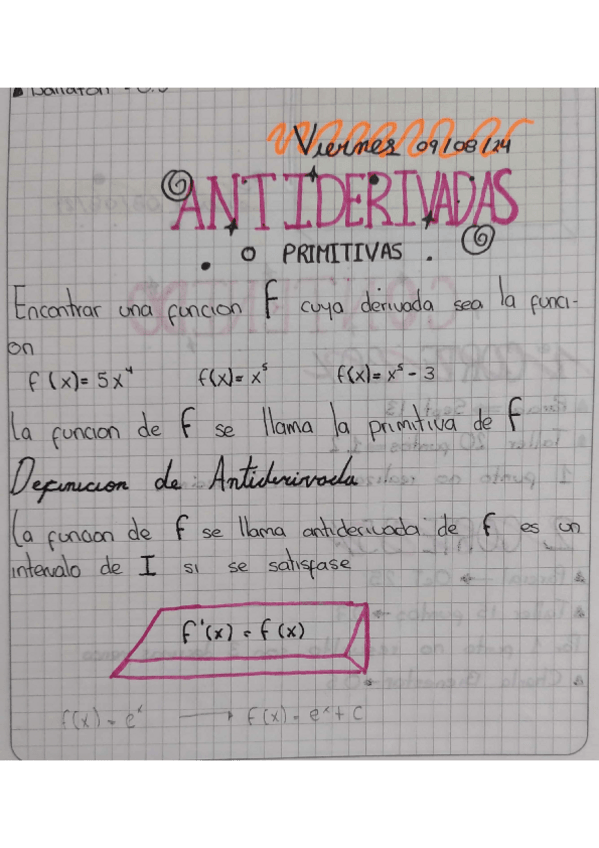 Viernes 09/08/24
ANTIDERIVADAS
O PRIMITIVAS.
Encontrar una funcion F cuya derivada sea la funci-
on
f(x)= 5x⁴ f(x)= x⁵ f(x)= x⁵ - 3
La funcion de F se llama la primitiva de f
Definicion de Antiderivada
La funcion de f se llama antiderivada de f es un
intervalo de I si se satisfase
f'(x) = f(x)
f(x) = eˣ → f(x) = eˣ + C